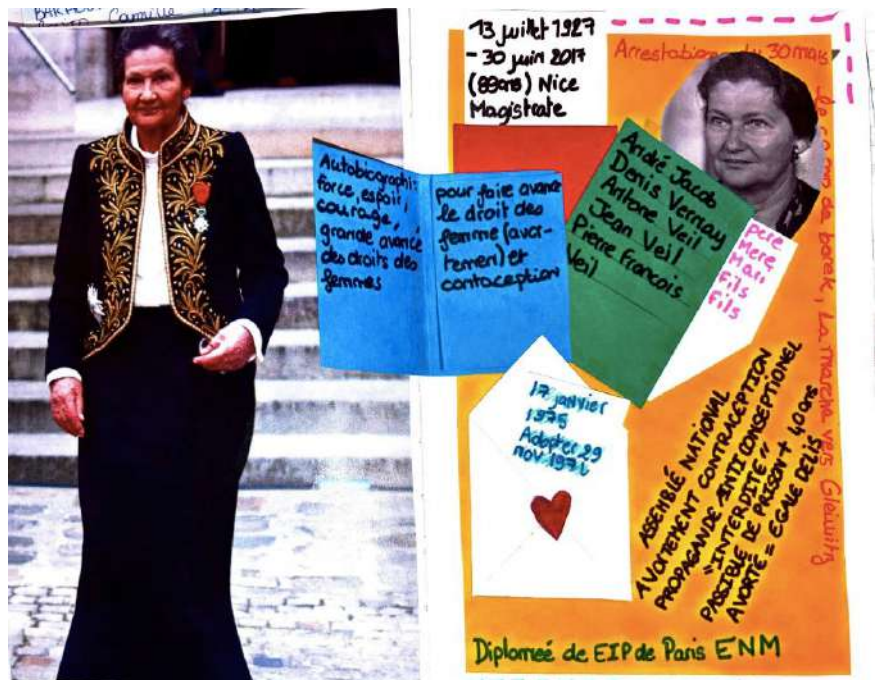 Camille
13 juillet 1927
- 30 juin 2017
(89ans) Nice
Magistrate
Arrestation du 30 mars
le camp de borek, La marche vers Gleiwitz
Autobiographi:
force, espoir,
courage,
grande avancé
des droits des
femmes
pour faire avance
le droit des
femme (avor-
tement) et
contaception
André Jacob
Denis Vernay
Antoine Veil
Jean Veil
Pierre François
Veil
pere
Mere
Mari
Fils
Fils
17 janvier
1975
Adopter 29
nov 1974
ASSEMBLÉ NATIONAL
AVORTEMENT CONTRACEPTION
PROPAGANDE ANTICONSEPTIONEL
"INTERDITE"
PASSIBLE DE PRISON + 40 ans
AVORTÉ = EGALE DELIS
Diplomeé de EIP de Paris ENM